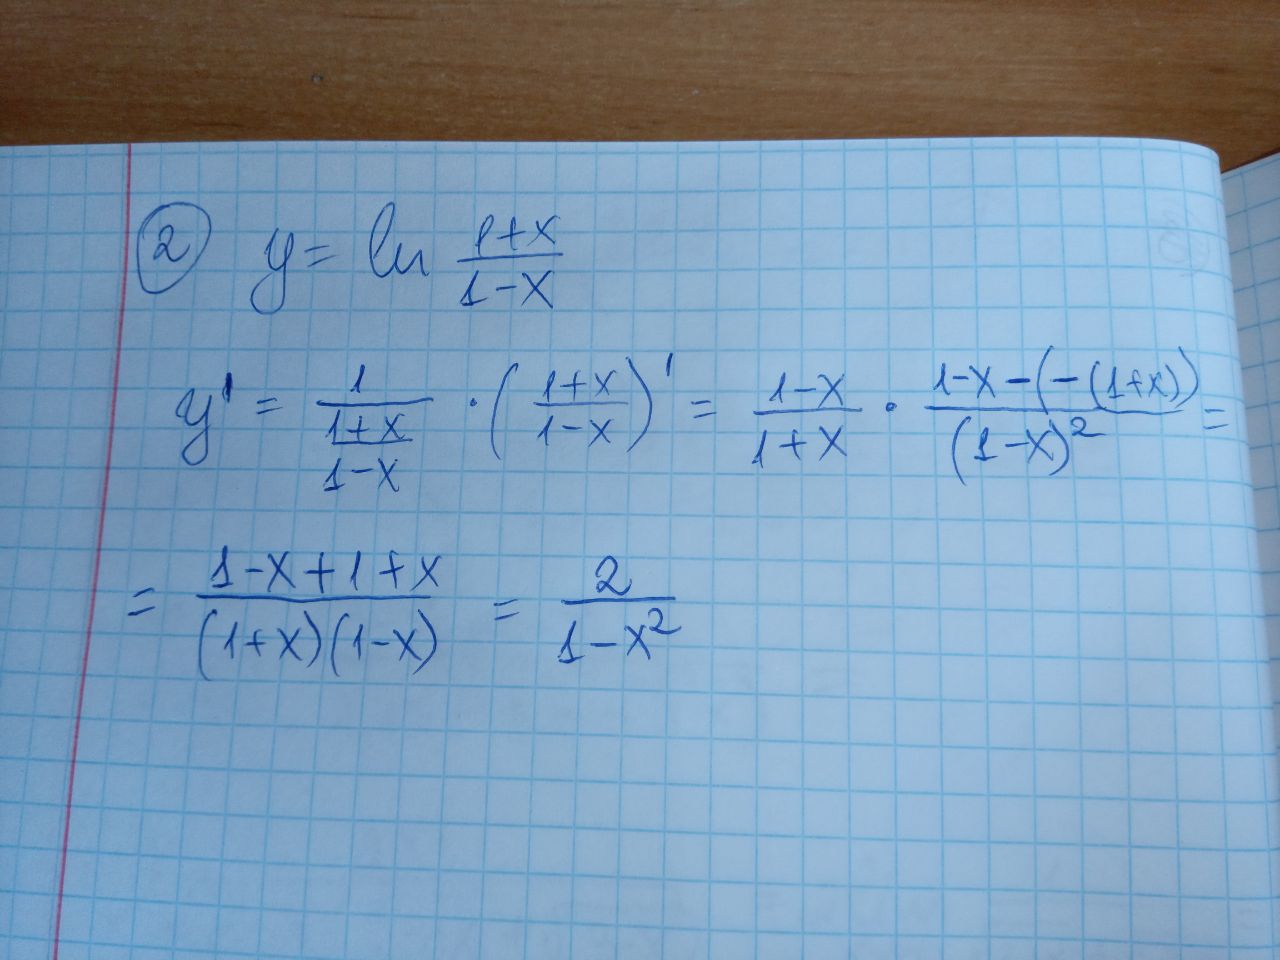 ② y = ln (1+x)/(1-x)
y' = 1/((1+x)/(1-x)) · ((1+x)/(1-x))' = (1-x)/(1+x) · (1-x-(-(1+x)))/(1-x)² =
= (1-x+1+x)/((1+x)(1-x)) = 2/(1-x²)